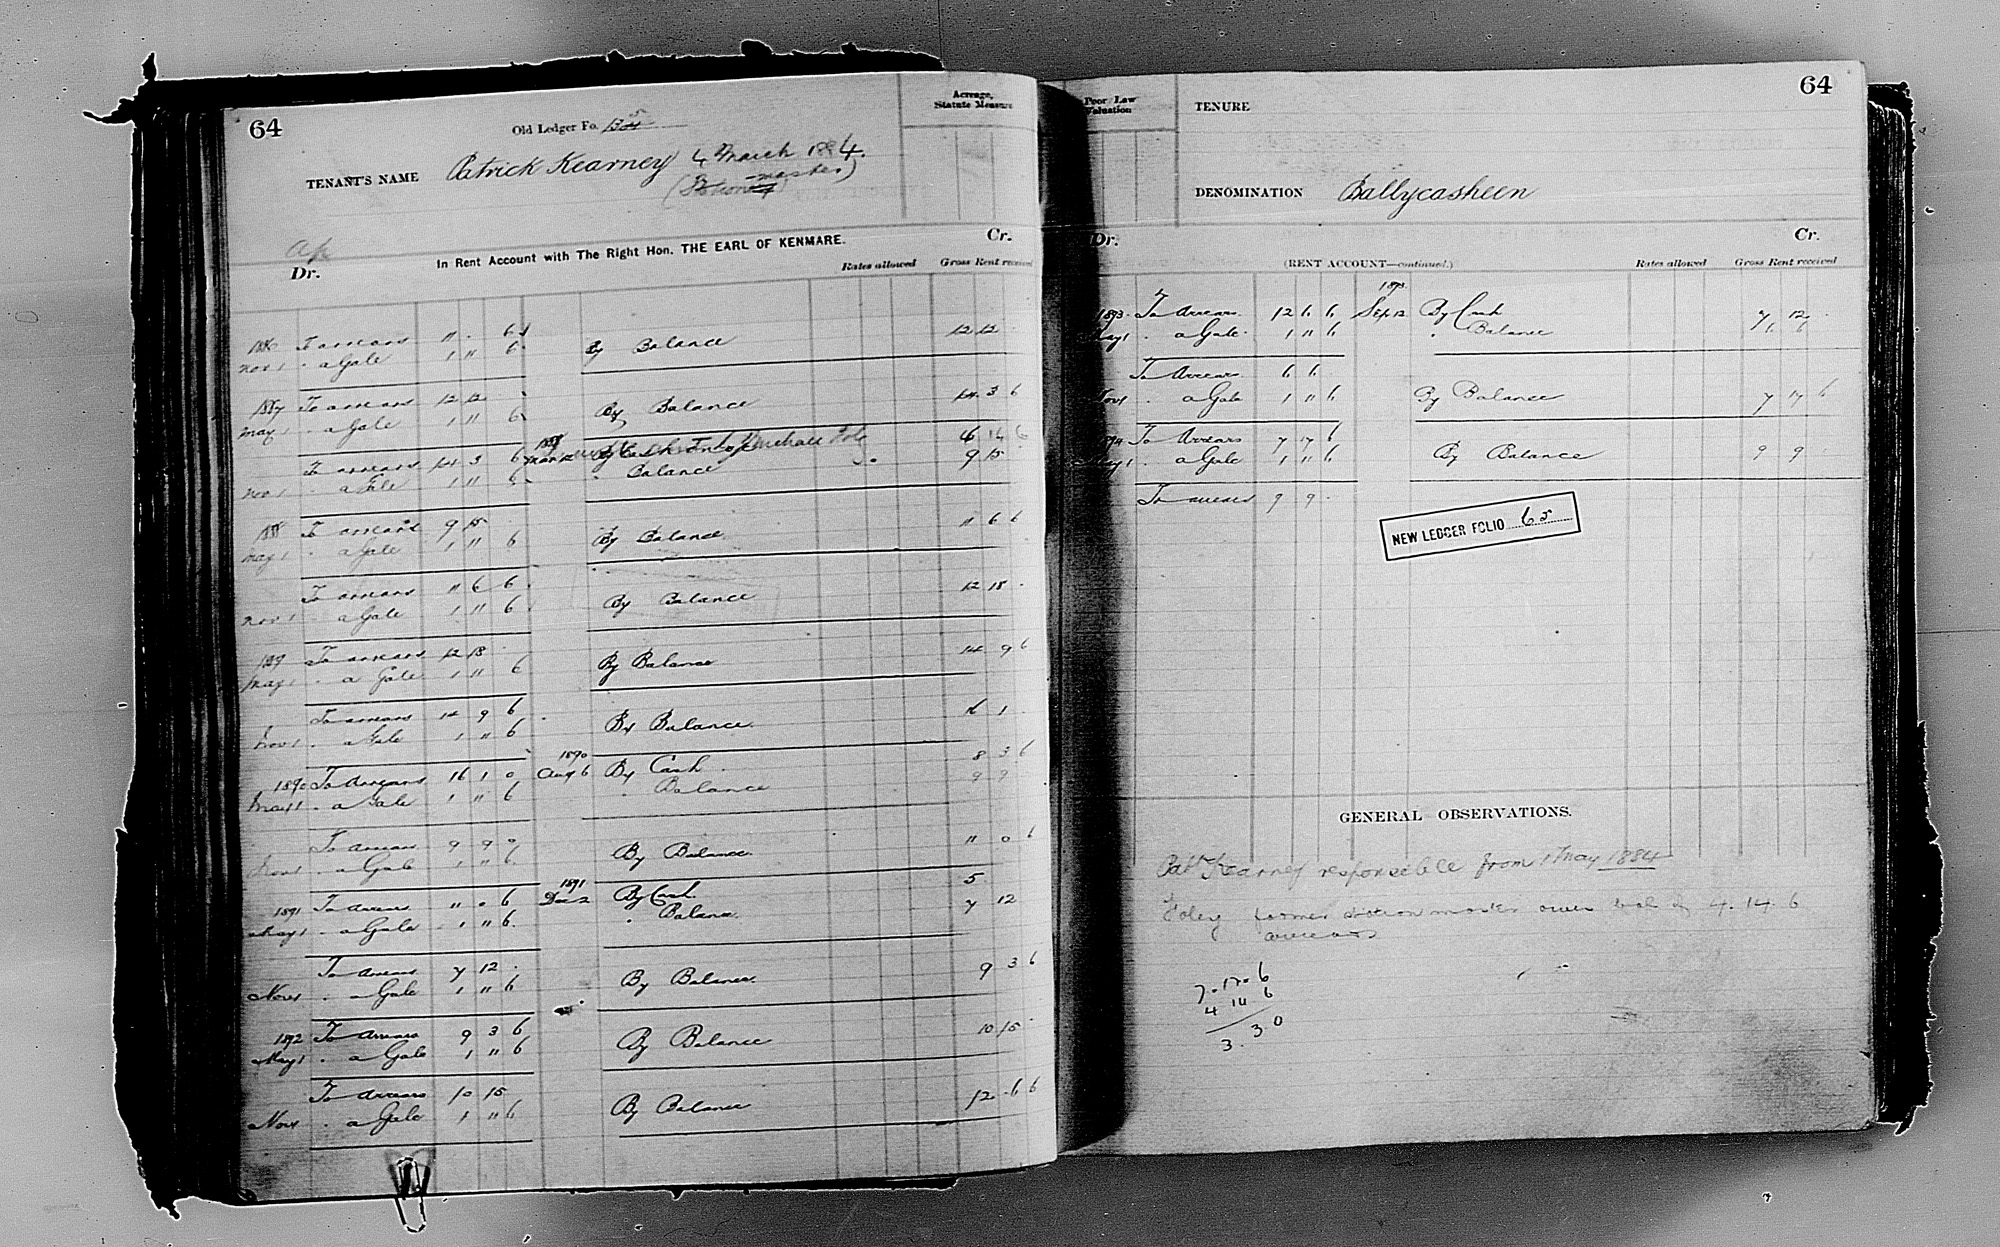 64
Old Ledger Fo.
Acreage,
Statute Measure
TENANT'S NAME Patrick Kearney 4 March 1884.
(Station master)
In Rent Account with The Right Hon. THE EARL OF KENMARE.
Dr. Cr.
Rates allowed Gross Rent received
1886 To arrears 11 . 6
Nov 1 . a Gale 1 11 6 By Balance 12 12 .
1887 To arrears 12 12 .
May 1 . a Gale 1 11 6 By Balance 14 3 6
To arrears 14 3 6 By Cash 6 14 6
Nov 1 . a Gale 1 11 6 . Balance 9 15
1888 To arrears 9 15
May 1 . a Gale 1 11 6 By Balance 11 6 6
To arrears 11 6 6
Nov 1 . a Gale 1 11 6 By Balance 12 18 .
1889 To arrears 12 18
May 1 . a Gale 1 11 6 By Balance 14 9 6
To arrears 14 9 6
Nov 1 . a Gale 1 11 6 By Balance 16 1 .
1890
1890 To Arrears 16 1 0 Aug 6 By Cash 8 3 6
May 1 . a Gale 1 11 6 " Balance 9 9
To Arrears 9 9 0
Nov 1 . a Gale 1 11 6 By Balance 11 0 6
1891
1891 To Arrears 11 0 6 Dec 2 By Cash 5
May 1 . a Gale 1 11 6 " Balance 7 12
To Arrears 7 12 .
Nov 1 . a Gale 1 11 6 By Balance 9 3 6
1892 To Arrears 9 3 6
May 1 . a Gale 1 11 6 By Balance 10 15
To Arrears 10 15
Nov 1 . a Gale 1 11 6 By Balance 12 6 6
64
Poor Law
Valuation
TENURE
DENOMINATION Ballycasheen
Dr. Cr.
(RENT ACCOUNT—continued.) Rates allowed Gross Rent received
1893.
1893. To Arrears 12 6 6 Sep 12 By Cash 7 12 .
May 1 . a Gale 1 11 6 . Balance 6 6
To Arrears 6 6
Nov 1 a Gale 1 11 6 By Balance 7 17 6
1894 To Arrears 7 17 6
May 1 . a Gale 1 11 6 By Balance 9 9
To arrears 9 9 .
NEW LEDGER FOLIO 65
GENERAL OBSERVATIONS.
Patk Kearney responsible from 1 May 1884
Foley former station master owes bal of 4.14.6
arrears
7.17.6
4 14 6
3. 3 0